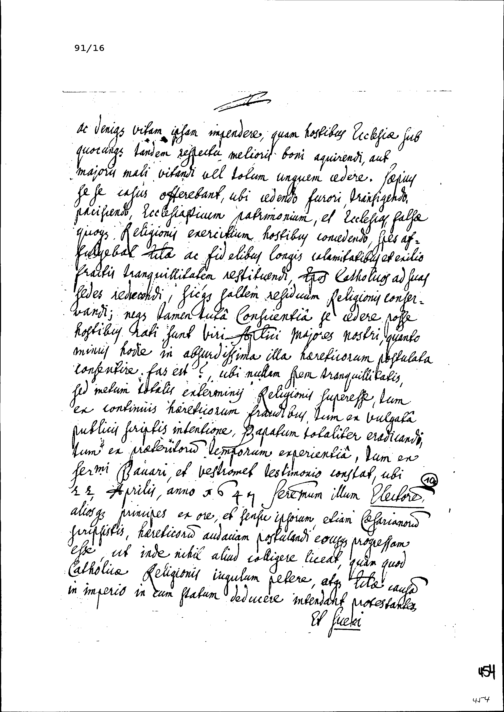 91/16
ac deniqs vitam ipsam impendere, quam hostibus Ecclesiæ sub
quocunqs tandem respectu melioris boni aquirendi, aut
majoris mali vitandi vel solum unquem cedere. Sæpius
sese casus offerebant, ubi cedendo furori, transigendo,
pacisendo, Ecclesiasticum patrimonium, et Ecclesiæ falsæ
quoqs Religionis exercitium hostibus concedendo, spes af-
fulgebat ac fidelibus longis calamitatibus et exilio
fractis tranquillitatem restituendi, Catholicos ad suas
sedes reducendi, sicqs saltem residuum Religionis conser-
vandi; neqs tamen tuta Conscientia se cedere posse
hostibus rati sunt viri fortes majores nostri, quanto
minus hodie in absurdissima illa hæreticorum postulata
consentire fas est?, ubi nullam spem tranquillitatis,
sed metum totalis exterminij Religionis superesse, tum
ex continuis hæreticorum fraudibus, tum ex vulgata
publicis scriptis intentione, Papatum totaliter eradicandi,
tum ex præteritorū temporum experientiâ, tum ex
sermi Bavari, et vestromet testimonio constat, ubi
22 Aprilis, anno 1647 Seremum illum Electore, 10
aliosqs principes ex ore, et sensu ipsorum, etiam Cæsarianorū
scripsistis, hæreticorū audaciam postulandi eousqs progressam
esse, ut inde nihil aliud colligere liceat, quàm quod
Catholicæ Religionis iugulum petere, atqs causâ
in imperio in eum statum deducere intendant protestantes,
Et Sueci
454
454